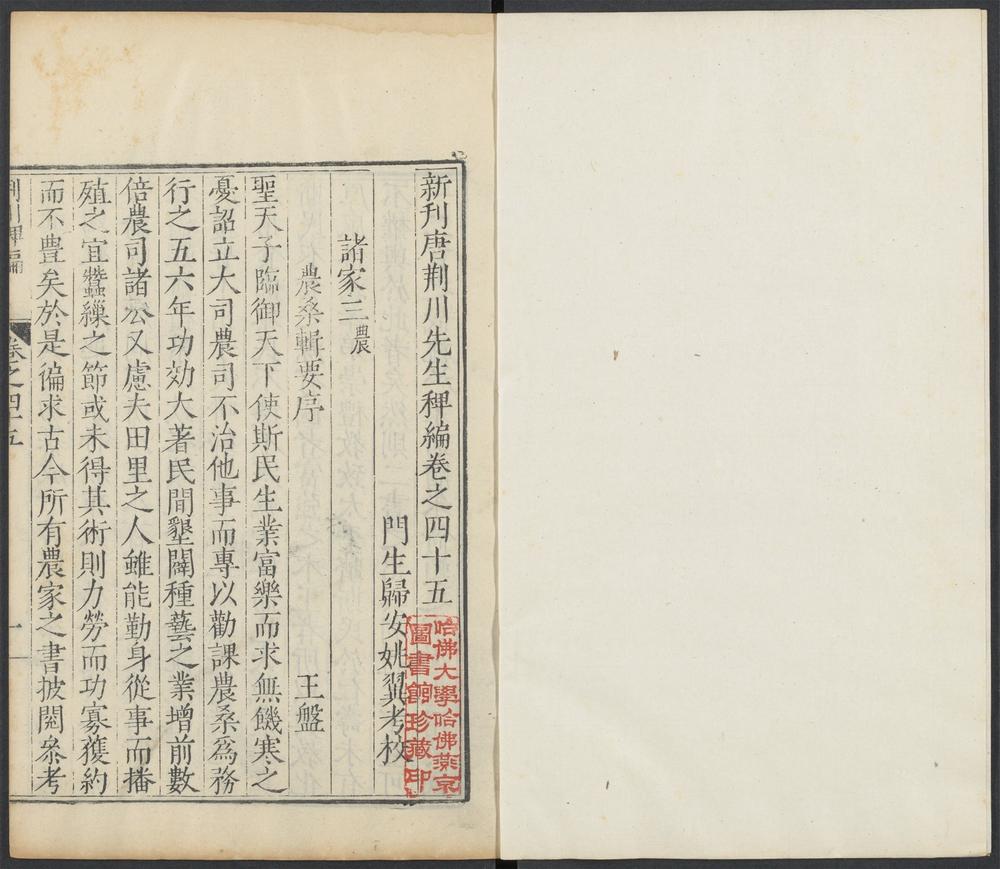 新刊唐荆川先生稗編卷之四十五
門生歸安姚翼考校
諸家三農
農桑輯要序 王盤
聖天子臨御天下使斯民生業富樂而求無饑寒之
憂詔立大司農司不治他事而專以勸課農桑爲務
行之五六年功効大著民間墾闢種藝之業增前數
倍農司諸公又慮夫田里之人雖能勤身從事而播
殖之宜蠶繅之節或未得其術則力勞而功寡獲約
而不豊矣於是徧求古今所有農家之書披閱叅考
荆川稗編 卷之四十五 一
哈佛大學哈佛燕京
圖書館珍藏印